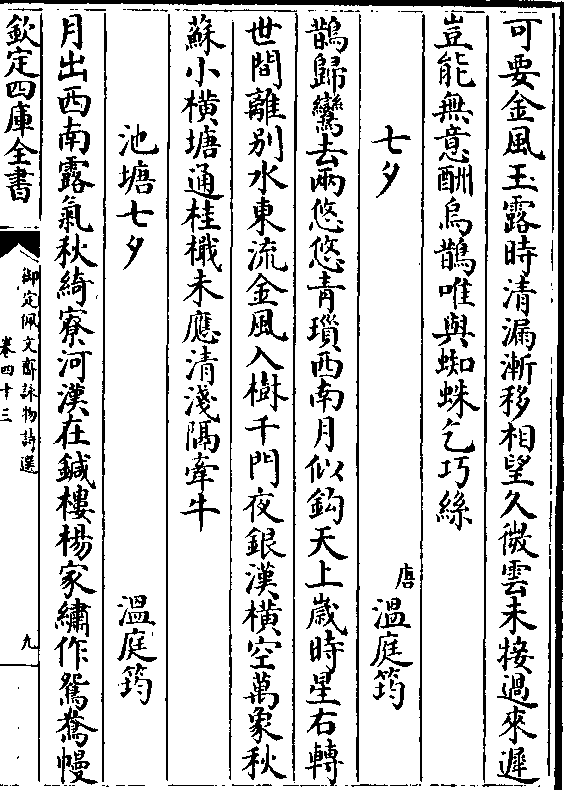 可要金風玉露時清漏漸移相望久微雲未接過來遲
豈能無意酬烏鵲唯與蜘蛛乞巧絲
七夕
唐溫庭筠
鵲歸鸞去兩悠悠青瑣西南月似鈎天上歲時星右轉
世間離別水東流金風入樹千門夜銀漢橫空萬象秋
蘇小橫塘通桂檝未應清淺隔牽牛
池塘七夕
溫庭筠
月出西南露氣秋綺寮河漢在鍼樓楊家繡作鴛鴦幔
欽定四庫全書
御定佩文齋詠物詩選
卷四十三
九